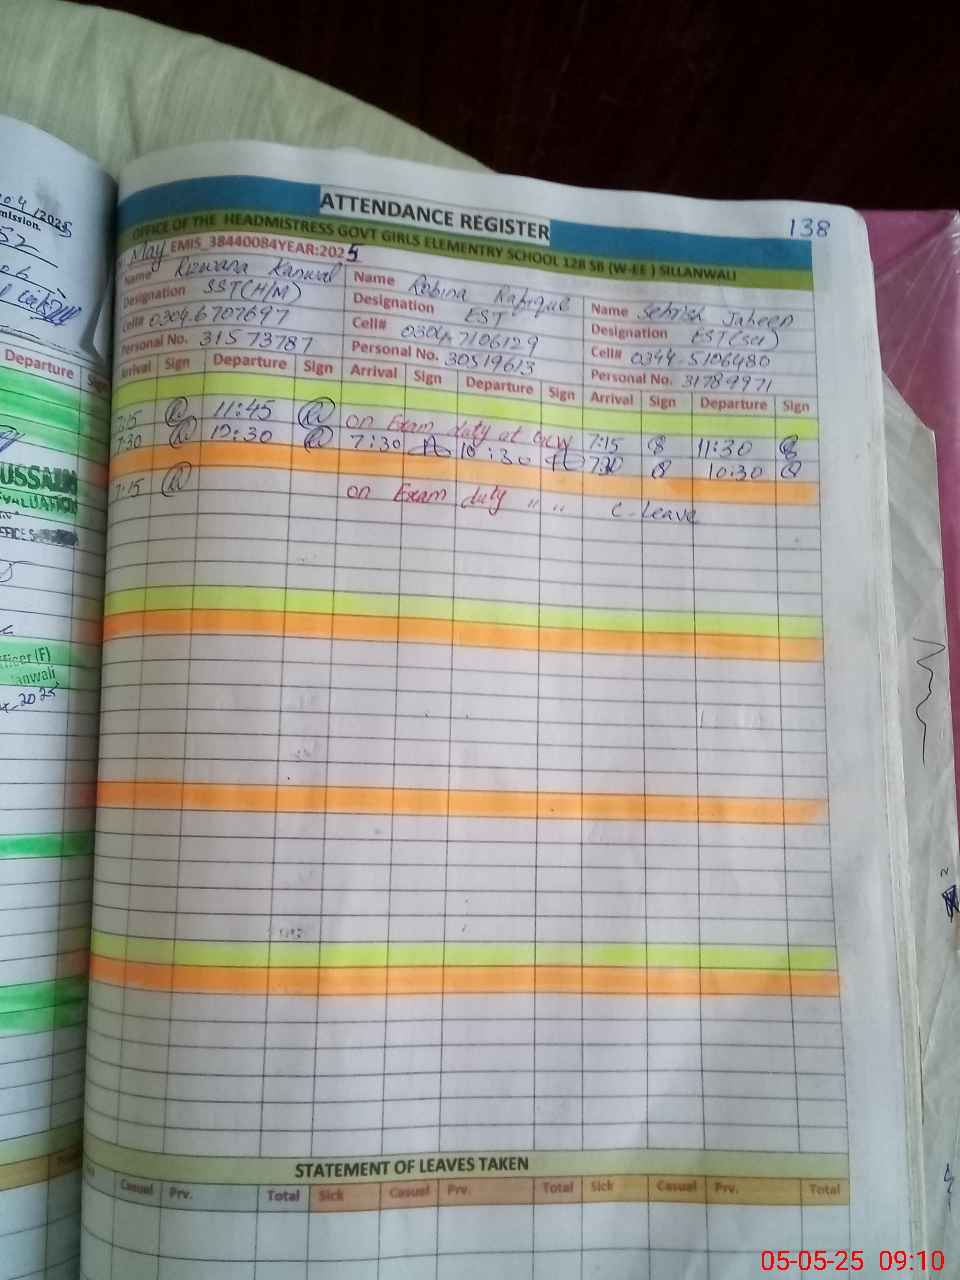 ATTENDANCE REGISTER
138
OFFICE OF THE HEADMISTRESS GOVT GIRLS ELEMENTRY SCHOOL 128 SB (W-EE ) SILLANWALI
May EMIS_38440084YEAR:2025
Name Rizwana Kanwal Name Robina Rafique Name Sehrish Jabeen
Designation SST(H/M) Designation EST Designation EST(Sci)
Cell# 0304.6707697 Cell# 0304.7106129 Cell# 0344-5106480
Personal No. 31573787 Personal No. 30519613 Personal No. 31789971
Arrival Sign Departure Sign Arrival Sign Departure Sign Arrival Sign Departure Sign
7:15 11:45 on Exam duty at 7:15 11:30
7:30 10:30 7:30 10:30 7:30 10:30
7:15 on Exam duty " " C. Leave
STATEMENT OF LEAVES TAKEN
Casual Prv. Total Sick Casual Prv. Total Sick Casual Prv. Total
04/2025
mission.
52
Departure Sign
USSAIN
EVALUATION
OFFICES
fficer (F)
anwali
2025
05-05-25 09:10